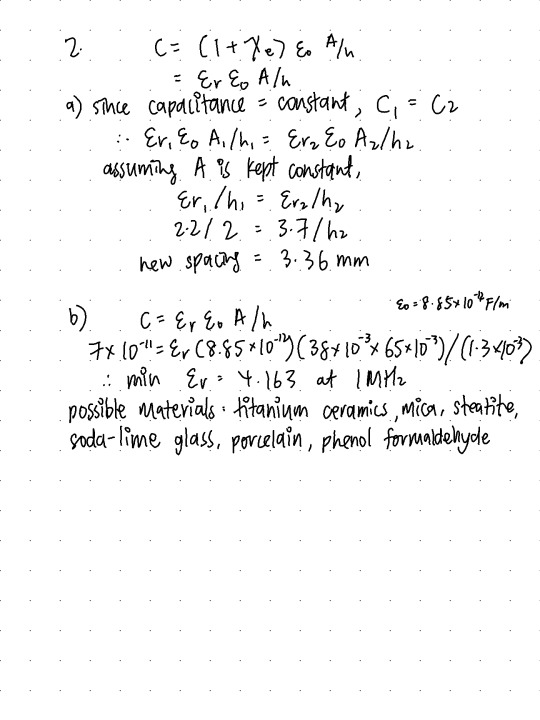 2. C = (1 + χe) ε0 A/h
= εr ε0 A/h
a) since capacitance = constant, C1 = C2
∴ εr1 ε0 A1/h1 = εr2 ε0 A2/h2
assuming A is kept constant,
εr1/h1 = εr2/h2
2.2/2 = 3.7/h2
new spacing = 3.36 mm
ε0 = 8.85×10⁻¹² F/m
b) C = εr ε0 A/h
7×10⁻¹¹ = εr (8.85×10⁻¹²)(38×10⁻³×65×10⁻³)/(1.3×10⁻³)
∴ min εr = 4.163 at 1MHz
possible materials: titanium ceramics, mica, steatite,
soda-lime glass, porcelain, phenol formaldehyde